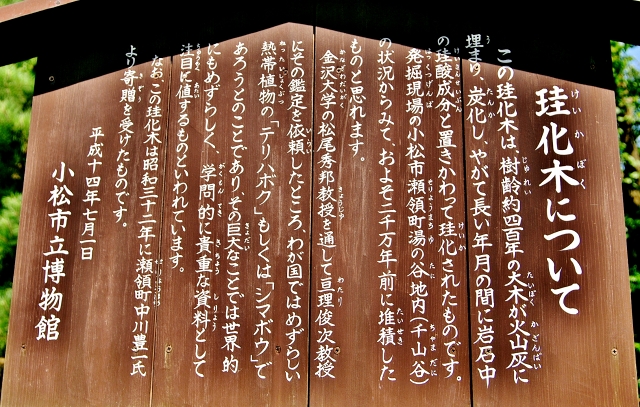 珪化木について
この珪化木は、樹齢約四百年の大木が火山灰に
埋まり、炭化し、やがて長い年月の間に岩石中
の珪酸成分と置きかわって珪化されたものです。
発掘現場の小松市瀬領町湯の谷地内（千山谷）
の状況からみて、およそ二千万年前に堆積した
ものと思れます。
金沢大学の松尾秀邦教授を通して亘理俊次教授
にその鑑定を依頼したところ、わが国ではめずらしい
熱帯植物の「テリハボク」もしくは「シマボウ」で
あろうとのことであり、その巨大なことでは世界的
にもめずらしく、学問的に貴重な資料として
注目に値するものといわれています。
なお、この珪化木は昭和三十二年に瀬領町中川豊一氏
より寄贈を受けたものです。
平成十四年七月一日
小松市立博物館